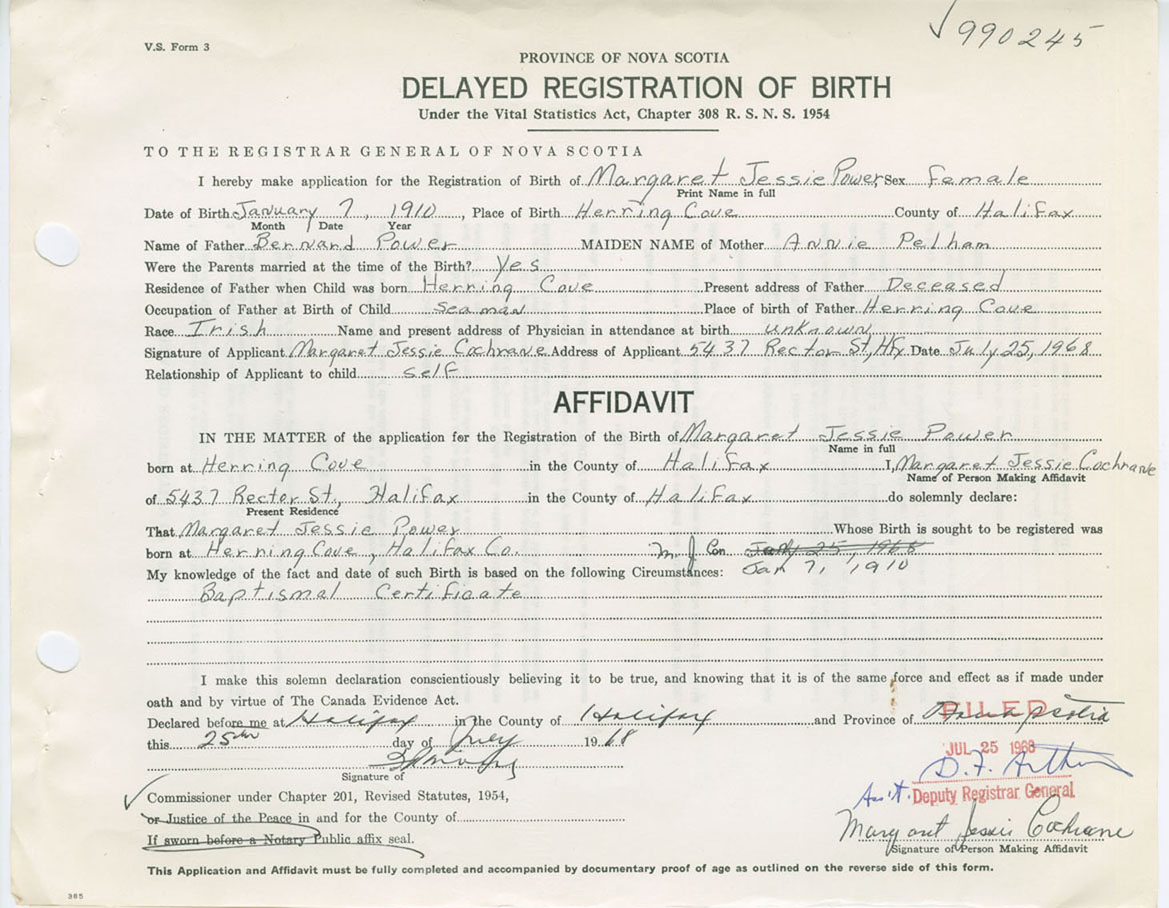 ✓990245
V.S. Form 3
PROVINCE OF NOVA SCOTIA
DELAYED REGISTRATION OF BIRTH
Under the Vital Statistics Act, Chapter 308 R. S. N. S. 1954
TO THE REGISTRAR GENERAL OF NOVA SCOTIA
I hereby make application for the Registration of Birth of Margaret Jessie Power Sex female
Print Name in full
Date of Birth January 7, 1910, Place of Birth Herring Cove County of Halifax
Month Date Year
Name of Father Bernard Power MAIDEN NAME of Mother Annie Pelham
Were the Parents married at the time of the Birth? Yes
Residence of Father when Child was born Herring Cove Present address of Father Deceased
Occupation of Father at Birth of Child Seaman Place of birth of Father Herring Cove
Race Irish Name and present address of Physician in attendance at birth unknown
Signature of Applicant Margaret Jessie Cochrane Address of Applicant 5437 Rector St, Hfx Date July 25, 1968
Relationship of Applicant to child self
AFFIDAVIT
IN THE MATTER of the application for the Registration of the Birth of Margaret Jessie Power
Name in full
born at Herring Cove in the County of Halifax I, Margaret Jessie Cochrane
Name of Person Making Affidavit
of 5437 Rector St, Halifax in the County of Halifax do solemnly declare:
Present Residence
That Margaret Jessie Power Whose Birth is sought to be registered was
born at Herring Cove, Halifax Co. M. J. Con. July 25, 1968
My knowledge of the fact and date of such Birth is based on the following Circumstances: Jan 7, 1910
Baptismal Certificate
I make this solemn declaration conscientiously believing it to be true, and knowing that it is of the same force and effect as if made under
oath and by virtue of The Canada Evidence Act.
Declared before me at Halifax in the County of Halifax and Province of Nova Scotia
FILED
this 25th day of July 1968
JUL 25 1968
D. F. Arthur
Signature of
Ass't. Deputy Registrar General
✓ Commissioner under Chapter 201, Revised Statutes, 1954,
or Justice of the Peace in and for the County of
Margaret Jessie Cochrane
If sworn before a Notary Public affix seal.
Signature of Person Making Affidavit
This Application and Affidavit must be fully completed and accompanied by documentary proof of age as outlined on the reverse side of this form.
365